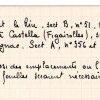 et le Pin, sect B, n° 51,
à Castella (Figairolles),
gnac, Sect A, n° 356 et
si des emplacements ou l'
fouilles seraient nécessair